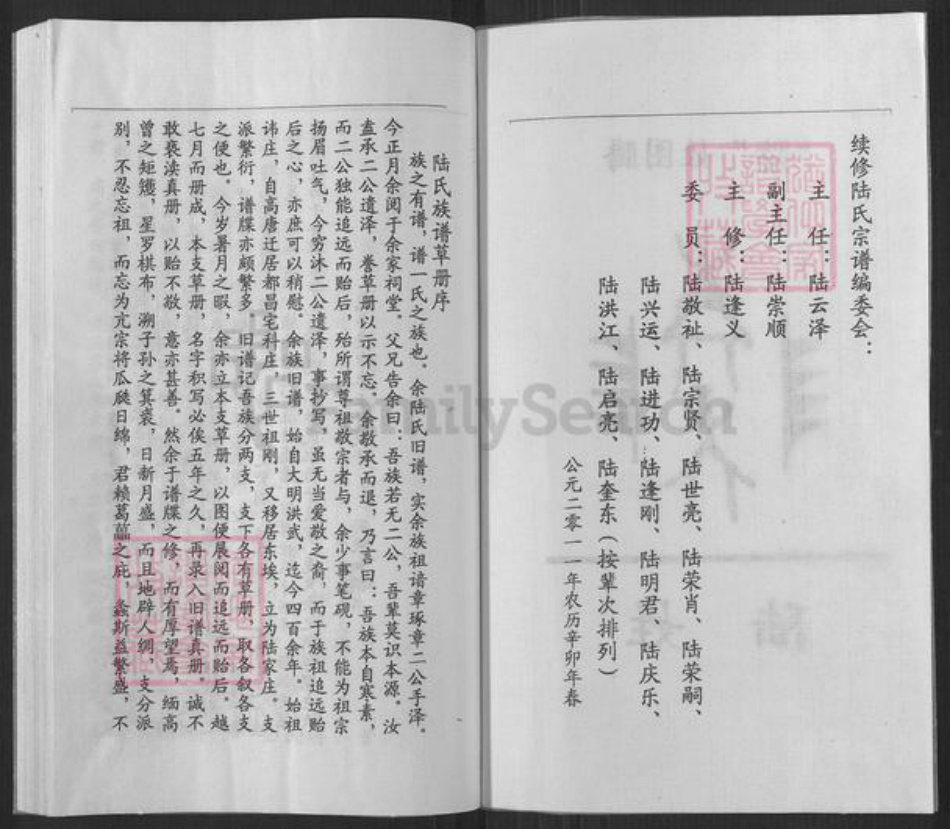 续修陆氏宗谱编委会：
主 任：陆云泽
副主任：陆崇顺
主 修：陆逢义
委 员：陆敬祉、陆宗贤、陆世亮、陆荣肖、陆荣嗣、
陆兴运、陆进功、陆逢刚、陆明君、陆庆乐、
陆洪江、陆启亮、陆奎东（按辈次排列）
公元二零一一年农历辛卯年春
陆氏族谱草册序
族之有谱，谱一氏之族也。余陆氏旧谱，实余族祖谙章琢章二公手泽。
今正月余阅于余家祠堂。父兄告余曰：吾族若无二公，吾辈莫识本源。汝
盍承二公遗泽，誊草册以示不忘。余敬承而退，乃言曰：吾族本自寒素，
而二公独能追远而贻后，殆所谓尊祖敬宗者与，余少事笔砚，不能为祖宗
扬眉吐气，今穷沐二公遗泽，事抄写，虽无当爱敬之裔，而于族祖追远贻
后之心，亦庶可以稍慰。余族旧谱，始自大明洪武，迄今四百余年。始祖
讳庄，自高唐迁居都昌宅科庄，三世祖刚，又移居东埃，立为陆家庄。支
派繁衍，谱牒亦颇繁多，旧谱记吾族分两支，支下各有草册，取各叙各支
之便也。今岁暑月之暇，余亦立本支草册，以图便展阅而追远而贻后。越
七月而册成，本支草册，名字积写必俟五年之久，再录入旧谱真册，诚不
敢亵渎真册，以贻不敬，意亦甚善。然余于谱牒之修，而有厚望焉，缅高
曾之矩矱，星罗棋布，溯子孙之箕裘，日新月盛，而且地辟人绸，支分派
别，不忍忘祖，而忘为亢宗将瓜瓞日绵，君赖葛藟之庇，螽斯益繁盛，不
FamilySearch